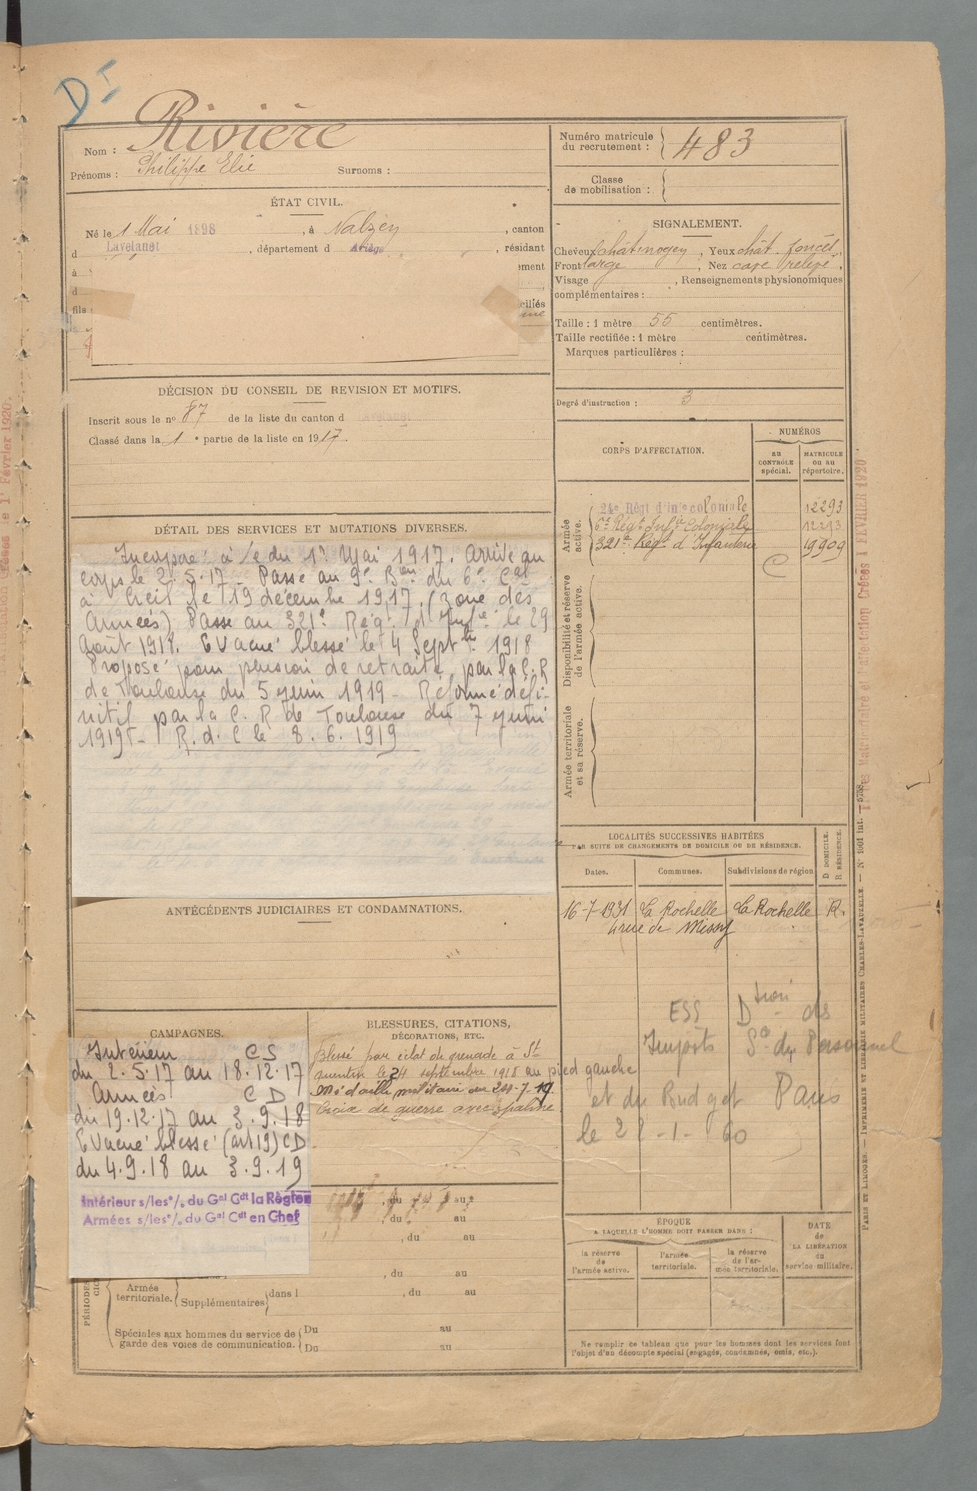 DI
Rivière
Nom :
Prénoms : Philippe Elie Surnoms :
Numéro matricule du recrutement : 483
Classe de mobilisation :
ÉTAT CIVIL.
Né le 1 Mai 1898, à Nalzen, canton
d Lavelanet, département d Ariège, résidant
à
d
file
SIGNALEMENT.
Cheveux chât moyen, Yeux chât. foncés,
Front large, Nez cave relevé,
Visage , Renseignements physionomiques
complémentaires :
Taille : 1 mètre 55 centimètres.
Taille rectifiée : 1 mètre centimètres.
Marques particulières :
Degré d'instruction : 3
DÉCISION DU CONSEIL DE REVISION ET MOTIFS.
Inscrit sous le nº 87 de la liste du canton d Lavelanet
Classé dans la 1e partie de la liste en 1917.
CORPS D'AFFECTATION.
NUMÉROS
au CONTRÔLE spécial.
MATRICULE ou au répertoire.
Armée active.
24e Régt d'infie coloniale 12293
6e Régt Infie Coloniale
321e Régt d'Infanterie 19909
Disponibilité et réserve de l'armée active.
Armée territoriale et sa réserve.
DÉTAIL DES SERVICES ET MUTATIONS DIVERSES.
Incorporé à /c du 1er Mai 1917. Arrivé au
corps le 2.5.17. Passé au 9e Bon du 6e Cal
à Creil le 19 décembre 1917 (zone des
Armées) Passé au 321e Rég. d'Infie le 29
Août 1918. Evacué blessé le 4 Septbre 1918
Proposé pour pension de retraite par la C. R
de Toulouse du 5 juin 1919 - Réformé défi-
nitif par la C. R de Toulouse du 7 juin
1919 - R. d. C le 8. 6. 1919
LOCALITÉS SUCCESSIVES HABITÉES
PAR SUITE DE CHANGEMENTS DE DOMICILE OU DE RÉSIDENCE.
Dates. Communes. Subdivisions de région
D DOMICILE.
R RÉSIDENCE.
16-7-1931 La Rochelle La Rochelle R.
4 rue de Missy
ESS Dtion des
Impôts Son du Personnel
et du Budget Paris
le 22-1-60
ANTÉCÉDENTS JUDICIAIRES ET CONDAMNATIONS.
CAMPAGNES.
Intérieur CS
du 2.5.17 au 18.12.17
Armées CD
du 19.12.17 au 3.9.18
Evacué blessé (art 19) CD
du 4.9.18 au 3.9.19
Intérieur s/les °/. du Gal Cdt la Région
Armées s/les °/. du Gal Cdt en Chef
BLESSURES, CITATIONS,
DÉCORATIONS, ETC.
Blessé par éclat de grenade à St
Quentin le 24 septembre 1918 au pied gauche
Médaille militaire du 24.7.19
Croix de guerre avec palme.
, du au
, du au
, du au
, du au
, du au
Armée territoriale.
Supplémentaires
dans l
Spéciales aux hommes du service de
garde des voies de communication.
Du au
Du au
ÉPOQUE
A LAQUELLE L'HOMME DOIT PASSER DANS :
la réserve de l'armée active.
l'armée territoriale.
la réserve de l'armée territoriale.
DATE de LA LIBÉRATION du service militaire.
Ne remplir ce tableau que pour les hommes dont les services font
l'objet d'un décompte spécial (engagés, condamnés, omis, etc.).
PARIS ET LIMOGES. — IMPRIMERIE ET LIBRAIRIE MILITAIRES CHARLES-LAVAUZELLE. — Nº 1001 int. — 5738.